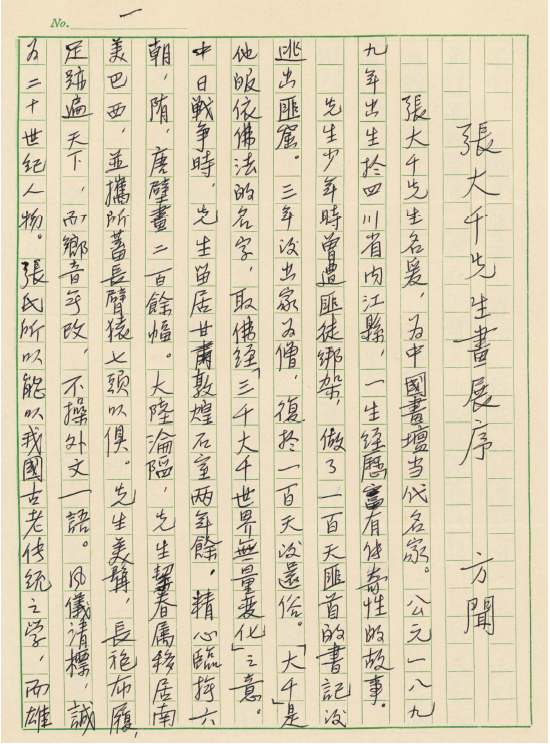 No. 一
張大千先生畫展序　方聞
張大千先生名爰，為中國畫壇当代名家。公元一八九
九年出生於四川省內江縣，一生經歷富有传奇性的故事。
先生少年時曾遭匪徒綁架，做了一百天匪首的書記後
逃出匪窟。三年後出家为僧，復於一百天後還俗。「大千」是
他皈依佛法的名字，取佛經「三千大千世界無量変化」之意。
中日戰爭時，先生留居甘肅敦煌石室两年餘，精心臨摹六
朝，隋，唐壁畫二百餘幅。大陸淪陷，先生挈眷属移居南
美巴西，並攜所蓄長臂猿七頭以俱。先生美髯，長袍布履，
足跡遍天下，而鄉音無改，不操外文一語。風儀清標，誠
为二十世紀人物。張氏所以能以我國古老传统之学，而雄